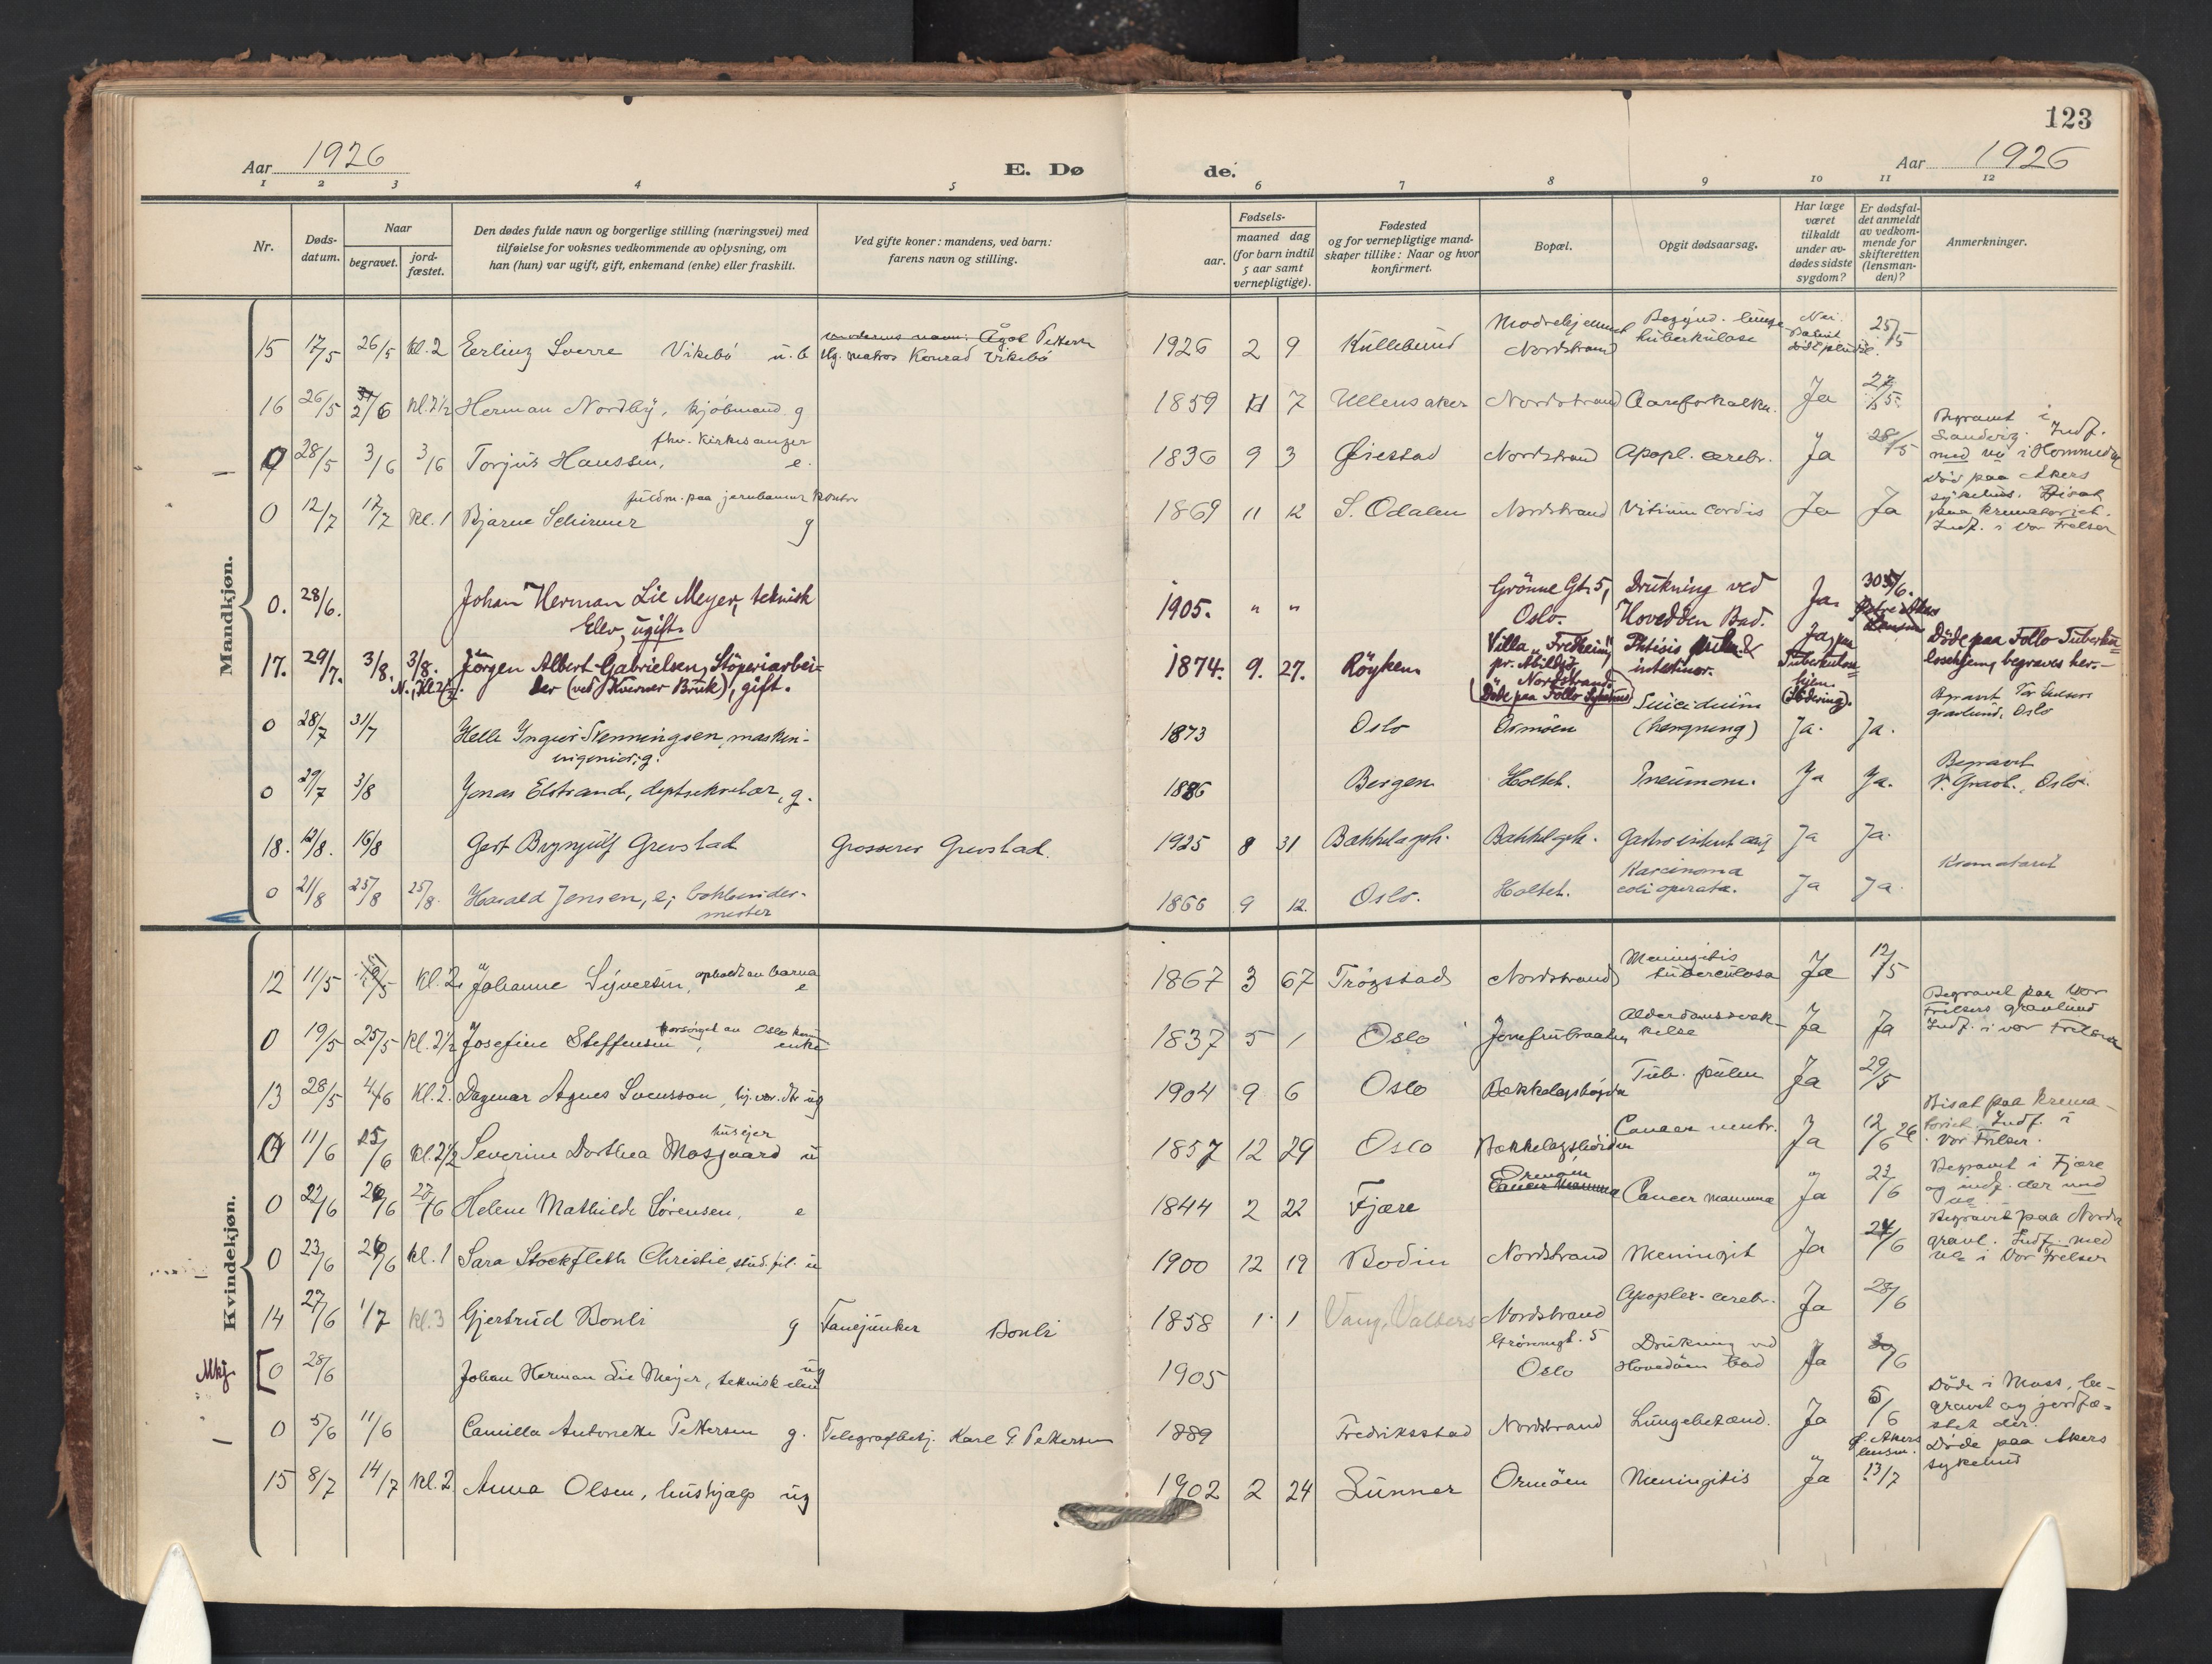 123
Aar 1926
E. Dø de.
Aar 1926
1 2 3 4 5 6 7 8 9 10 11 12
Nr.
Døds-
datum.
Naar
begravet.
jord-
fæstet.
Den dødes fulde navn og borgerlige stilling (næringsvei) med
tilføielse for voksnes vedkommende av oplysning, om
han (hun) var ugift, gift, enkemand (enke) eller fraskilt.
Ved gifte koner: mandens, ved barn:
farens navn og stilling.
Fødsels-
aar.
maaned dag
(for barn indtil
5 aar samt
vernepligtige).
Fødested
og for vernepligtige mand-
skaper tillike: Naar og hvor
konfirmert.
Bopæl.
Opgit dødsaarsag.
Har læge
været
tilkaldt
under av-
dødes sidste
sygdom?
Er dødsfal-
det anmeldt
av vedkom-
mende for
skifteretten
(lensman-
den)?
Anmerkninger.
Mandkjøn.
15 17/5 26/5 Kl. 2 Erling Sverre Vikebø u. b moderens navn: Ågot Pettersen
Ug. matros Konrad Vikebø 1926 2 9 Kullebund Mødrehjemmet
Nordstrand Begynd. lunge
tuberkulose Nei. 25/5
16 26/5 2/6 Kl. 2 1/2 Herman Nordby, kjøbmand g 1859 7 Ullensaker Nordstrand Aareforkalkn. Ja 27/5
0 28/5 3/6 3/6 Torjus Hanssen, fhv. kirkesanger e. 1836 9 3 Øiestad Nordstrand Apopl. cerebr. Ja 28/5 Begravet i
Indf.
med no i Hommedal
0 12/7 17/7 Kl. 1 Bjarne Schirmer fuldm. paa jernbanens kontor g 1869 11 12 S. Odalen Nordstrand Vitium cordis Ja Ja Død paa Akers
sykehus. Bisat
paa krematoriet.
Indf. i Vor Frelser
0. 28/6. Johan Herman Lie Meyer, teknisk
Elev, ugift. 1905. " " Grønne Gt. 5,
Oslo. Drukning ved
Hovedøen Bad. Ja. 30/6.
Østre Akers
Lensm.
17. 29/7. 3/8. 3/8.
N., Kl 2 1/2. Jörgen Albert Gabrielsen, Støperiarbei=
der (ved Kværner Bruk), gift. 1874. 9. 27. Röyken Villa "Fredheim",
pr. Abildsø,
Nordstrand.
Døde paa Follo Sykehus Phtisis pulm. &
intestinor. Ja, paa
Tuberkulose
hjem
Døde paa Follo Tuberku=
losehjem, begraves her.-
0 28/7 31/7 Helle Yngvar Flenningsen, maskin-
ingeniør, g. 1873 Oslo Ormøen Suicidium
(hengning) Ja. Ja. Begravet Vor Frelsers
gravlund, Oslo
0 29/7 3/8 Jonas Elstrand, deptsekretær, g. 1886 Bergen Holtet. Pneumoni. Ja Ja. Begravet
V. Gravl., Oslo.
18. 12/8. 16/8 Gert Brynjulf Grevstad Grosserer Grevstad. 1925 8 31 Bækkelagsh. Bækkelagsh. Gastro intest. Ja Ja.
0 21/8 25/8 25/8. Harald Jensen, e; bokbinder-
mester 1866 9 12. Oslo. Holtet. Karcinoma
coli operata. Ja Ja. Krematoriet
Kvindekjøn.
12 11/5 Kl. 2 Johanne Syversen, opholdt av barna e 1867 3 67 Trøgstad Nordstrand Meningitis
tuberculosa Ja 12/5
0 19/5 25/5 Kl. 2 1/2 Josefine Steffensen, forsørget av Oslo kom. enke 1837 5 1 Oslo Jomfrubraaten Alderdomssvæk-
kelse Ja Ja Begravet paa Vor
Frelsers gravlund
Indf. i vor Frelser
13 28/5 4/6 Kl. 2. Dagmar Agnes Svensson, ug 1904 9 6 Oslo Bækkelagshøgda Tub. pulm Ja 29/5
0 11/6 15/6 Kl. 2 1/2 Severine Dorthea Mosgaard husejer u 1857 12 29 Oslo Bækkelagshøiden Cancer ventr. Ja 12/6 26 Bisat paa krema-
toriet. Indf. i
Vor Frelser.
0 22/6 26/6 Helene Mathilde Sørensen, e 1844 2 22 Fjære Ormøen
Cancer Mamma Cancer mammæ Ja 22/6 Begravet i Fjære
og indf. der med
no.
0 23/6 26/6 Kl. 1 Sara Stockfleth Christie, stud. fil. u 1900 12 19 Bodin Nordstrand Meningit Ja 24/6 Begravet paa Nordre
gravl. Indf. med
no i Vor Frelser
14 27/6 1/7 Kl. 3 Gjertrud Bonli g Fanejunker Bonli 1858 1 1 Vang, Valdres Nordstrand Apoplex. cerebr. Ja 28/6
Mkj. [0 28/6 Johan Herman Lie Meyer, teknisk elev ug 1905 Grønnegt. 5
Oslo Drukning ved
Hovedøen bad Ja 30/6
0 5/6 11/6 Camilla Antonette Pettersen g. Telegrafbetj. Karl G Pettersen 1889 Fredriksstad Nordstrand Lungebetænd. Ja 5/6 Døde i Moss, be-
gravet og jordfæ=
stet der.
15 8/7 14/7 Kl. 2 Anna Olsen, hushjælp ug 1902 2 24 Lunner Ormøen Meningitis Ja Ø. Akers
lensm.
13/7 Døde paa Akers
sykehus